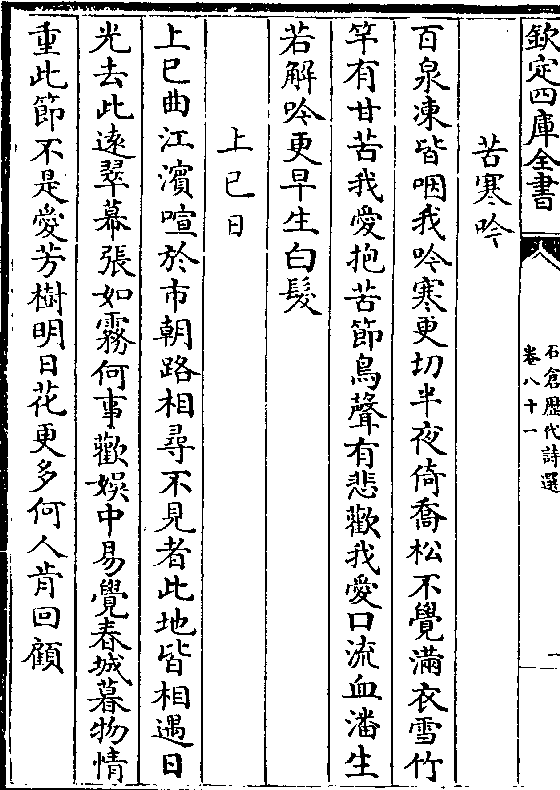 欽定四庫全書
石倉歴代詩選
卷八十一
一
苦寒吟
百泉凍皆咽我吟寒更切半夜倚喬松不覺滿衣雪竹
竿有甘苦我愛抱苦節鳥聲有悲歡我愛口流血潘生
若解吟更早生白髮
上巳日
上巳曲江濱喧於市朝路相尋不見者此地皆相遇日
光去此遠翠幕張如霧何事歡娯中易覺春城暮物情
重此節不是愛芳樹明日花更多何人肯回顧